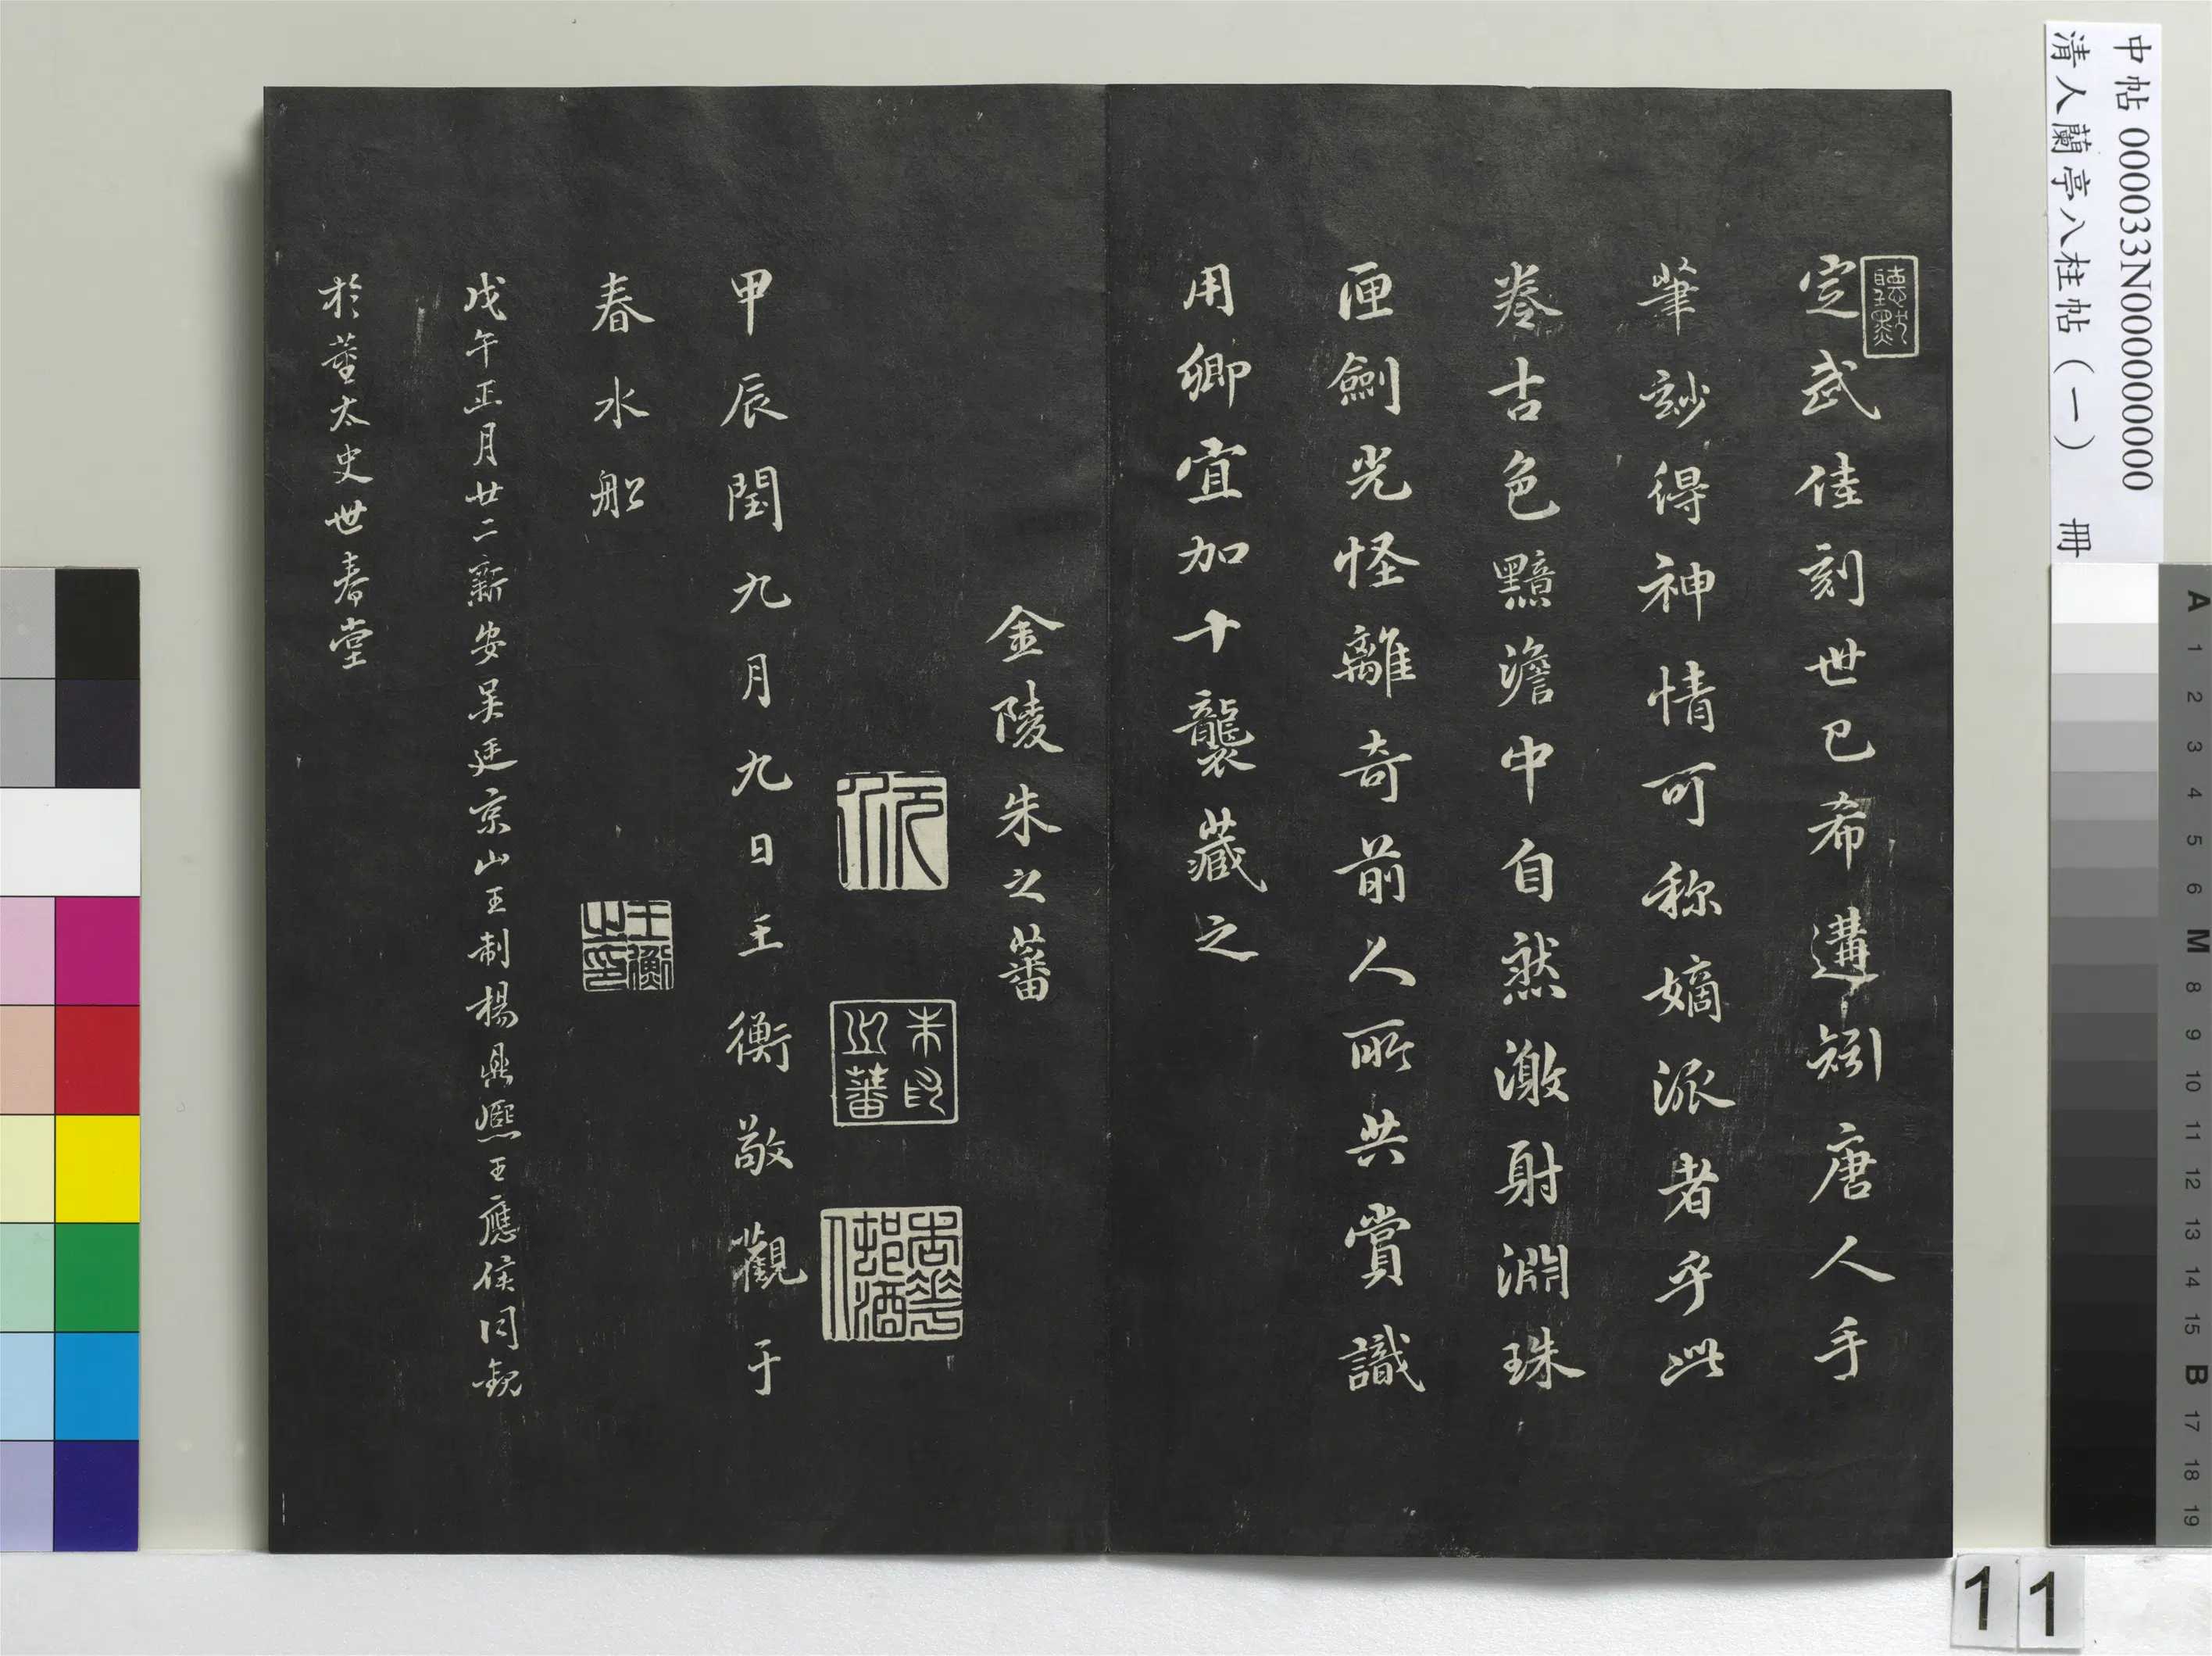 中帖 000033N000000000
清人蘭亭八柱帖(一) 冊
定武佳刻世已希遘矧唐人手
筆玅得神情可称嫡派者乎此
卷古色黯澹中自然激射淵珠
匣劍光怪離奇前人所共賞識
用卿宜加十襲藏之
金陵朱之蕃
朱印之蕃
甲辰閏九月九日王衡敬觀于
春水船
王衡之印
戊午正月廿二新安吴廷京山王制楊鼎熙王應侯同觀
於董太史世春堂
A 1 2 3 4 5 6 M 8 9 10 11 12 13 14 15 B 17 18 19
11